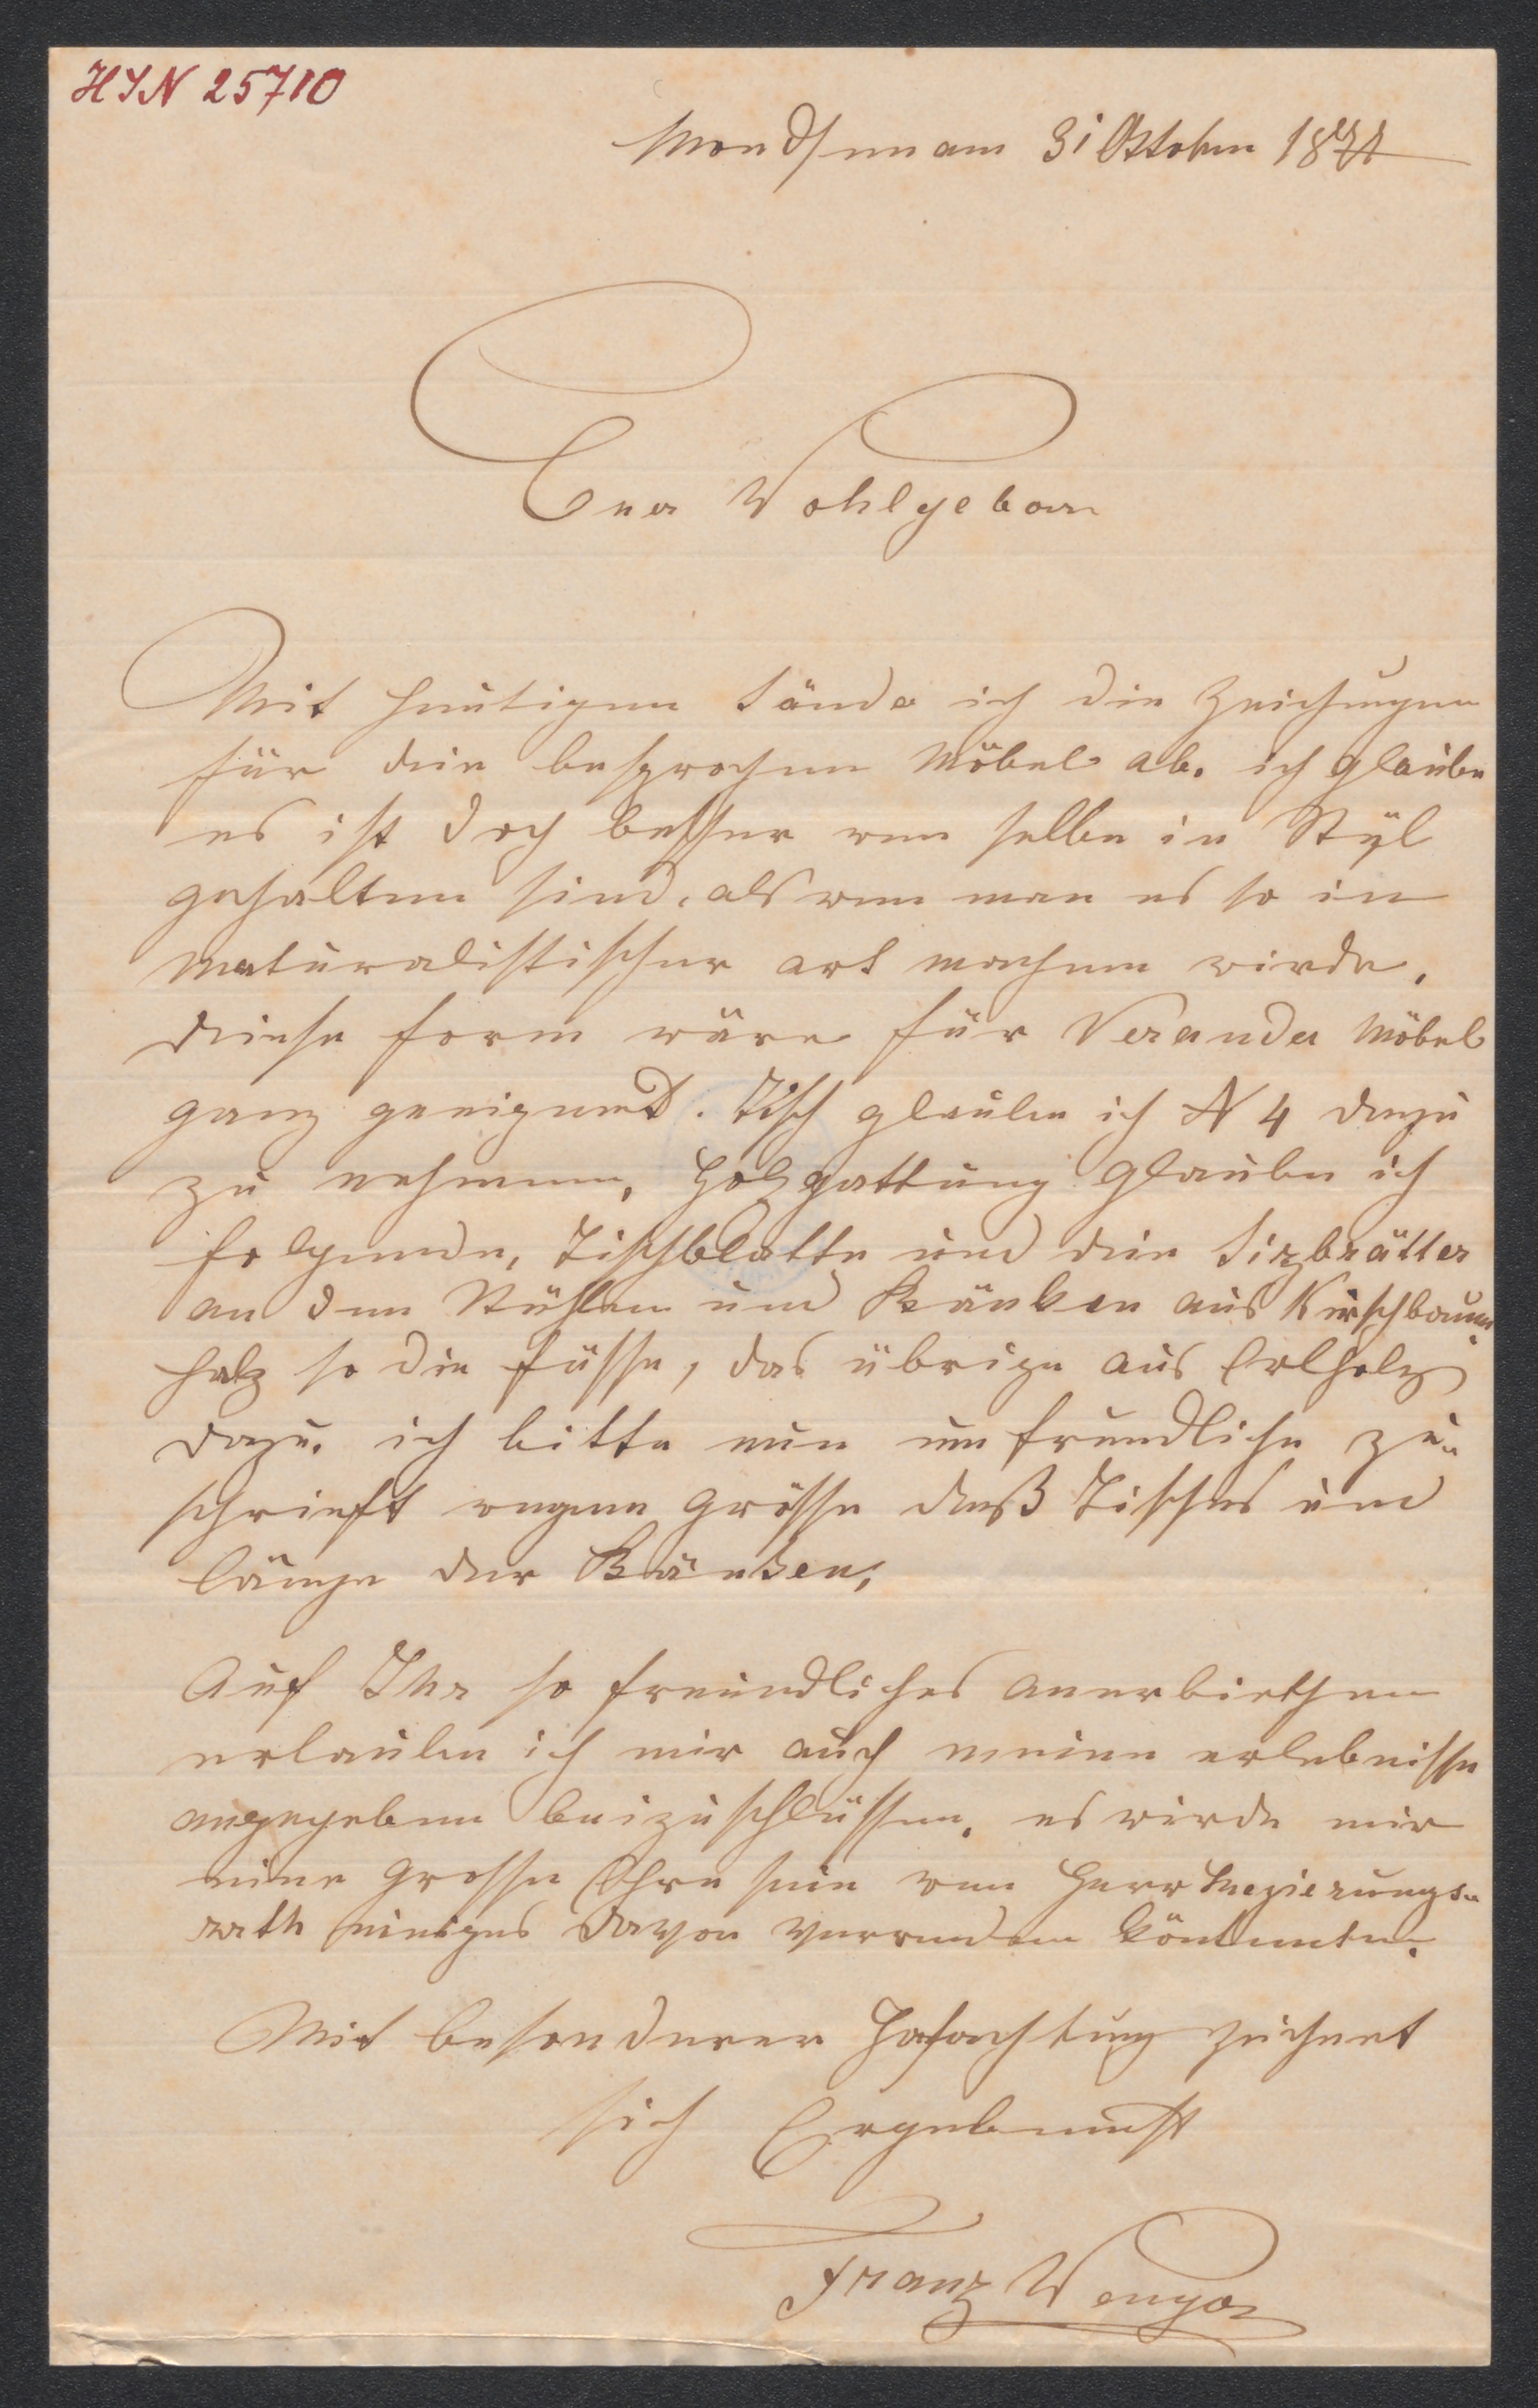 HIN 25710
Mondsee am 31 Oktober 18
Euer Wohlgeborn
Mit heutigen sände ich die Zeichnungen
für die besprochen Möbel ab. ich glaube
es ist doch besser wen selbe in Styl
gehalten sind, als wen man es so in
naturalistischer art machen wirde,
diese form wäre für Veranda Möbel
ganz geeignet. Tisch glaube ich N 4 dazu
zu nehmen, Holzgattung glaube ich
folgende, Tischblatte und die Sizbrätter
an den Stühlen und Bänken aus Kirschbaum
holz so die füsse, das übrige aus Erlholz
dazu. ich bitte nun um freundliche zu„
schrieft wegen grösse deß Tisches und
länge der Bänken,
Auf Ihr so freundliches anerbiethen
erlaube ich mir auch meine erlebnisse
angegeben beizuschlüssen, es wirde mir
eine grosse Ehre sein wen Herr Regierungs„
rath einiges davon verwenden könten.
Mit besonderer Hochachtung zeichnet
sich Ergebenst
Franz Wenger